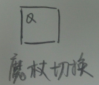 Q
魔杖切换